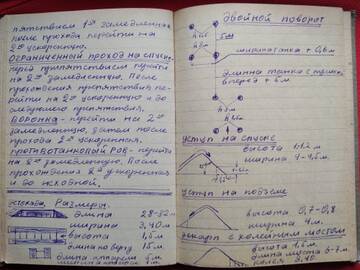 пятствием 1ую замедленная
после прохода перейти на
2ую ускоренную.
Ограниченный проход на спуске
перед препятствием перейти
на 2ую замедленную. После
прохождения препятствия пе-
рейти на 2ую ускоренную и до
следующего препятствия.
Воронка - перейти на 2ую
замедленную, затем после
прохода 2ую ускоренная.
Противотанковый ров - перейти
на 2ую замедленную. После
прохождения 2ую ускоренная
и до исходной.
Эстакада, Размеры.
длина 28-32 м
ширина 3,40 м
высота 1,6 м
длина по верху 15 м
длина аппарели 6 м
Двойной поворот
ширина танка + 0,6 м
длина танка с пушкой
вперед + 6 м
Уступ на спуске
высота 1-1,2 м
ширина 4-4,5 м.
Уступ на подъеме
высота 0,7-0,8
ширина 4 м.
Эскарп с колейным мостом
высота 1,6 м.